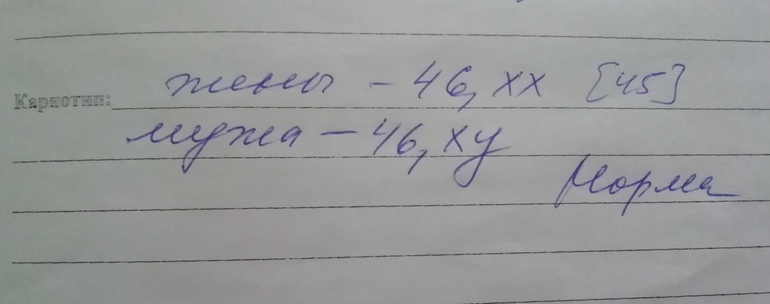 Кариотип: жены – 46, хх [45]
мужа – 46, ху
Норма